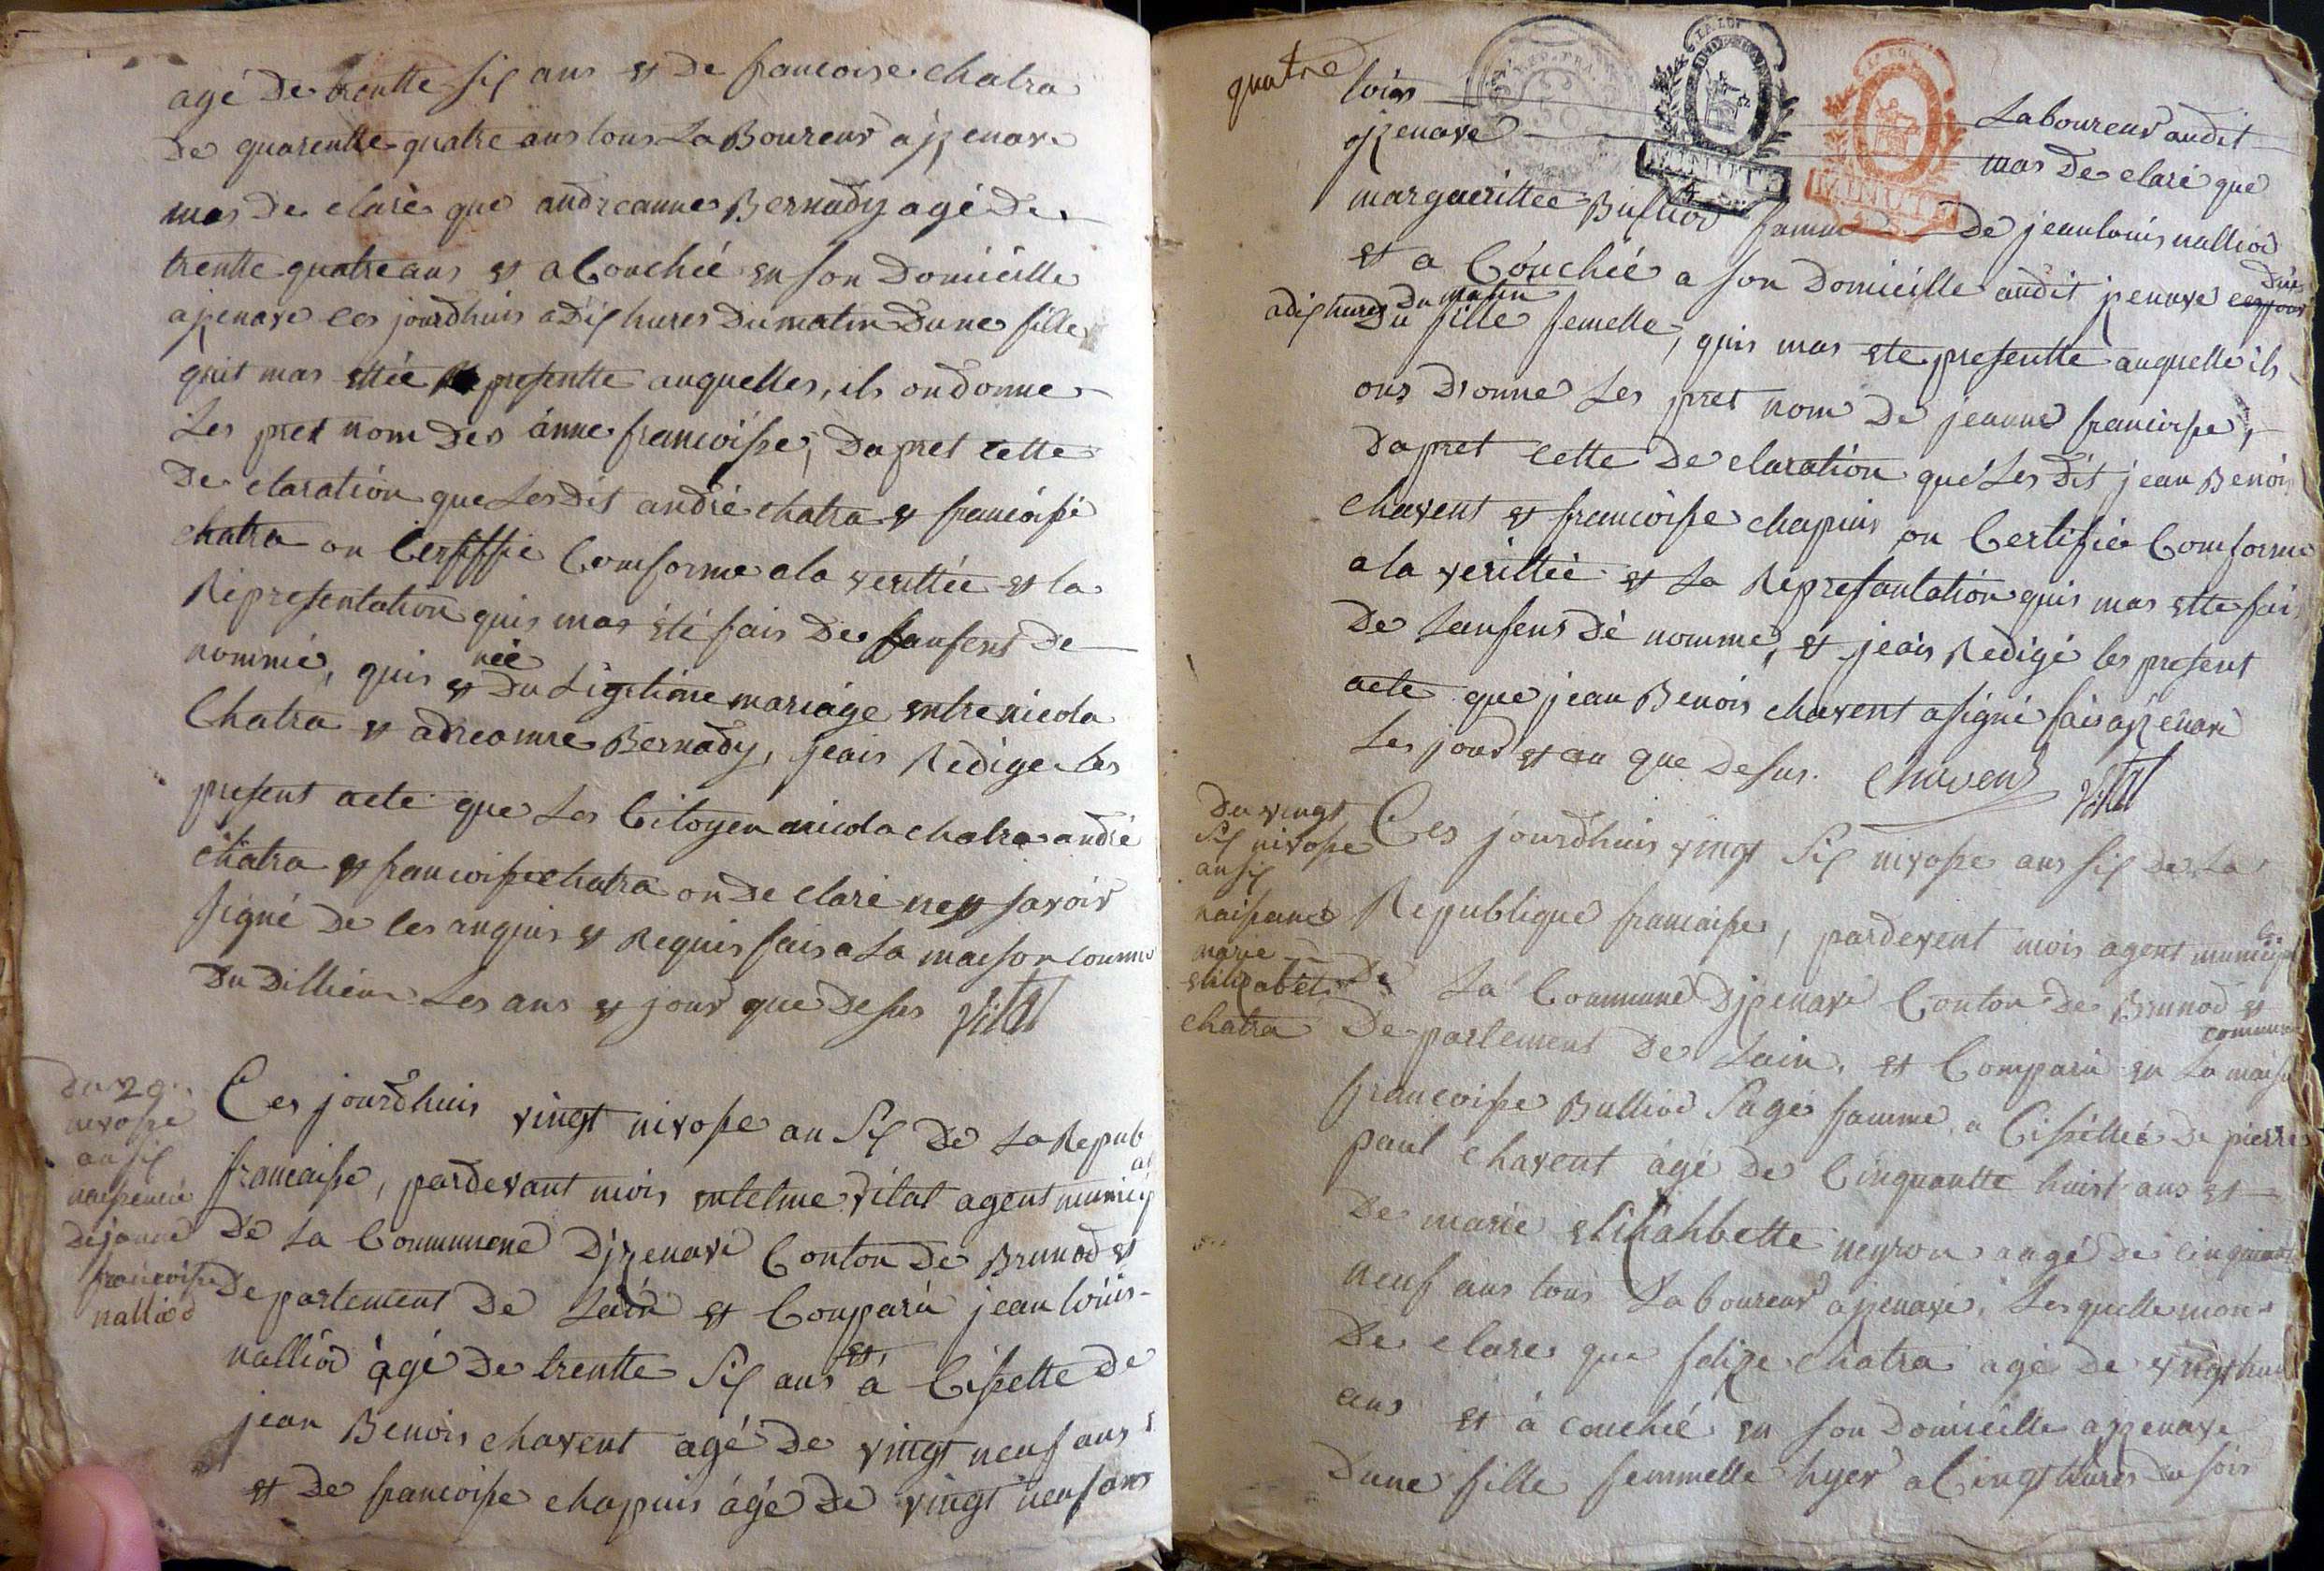 agé De trentte six ans et De francoise chatra
De quarentte quatre ans tous LaBoureur a jzenave
mas De claré que andreanne Bernady agé De
trentte quatre ans et a Couchéé en son Domicille
a jzenave ces jourdhuis a Dix hures Du matin Dune fille
quit mas ettéé presentte auquelles, ils on donne
Les pret nom Des anne francoisse, Dapret cette
De claration que Les Dit andré chatra et francoisse
chatra on Certiffie Comforme a la verittée et la
Representation quis mas été fais De Lanfent De
nommé, quis et née Du Ligitime mariage entre nicola
Chatra et adreanne Bernady, jeais Redige Les
present acte que Les Citoyen nicola chatra andré
chatra et francoisse chatra on De claré ne savoir
signé De les anquis et Requis fais a La maison commu
Du Dillieu Les ans et jour que Desus Vital
Du 29
nivosse
an six
naissence
De janne
francoisse
nalliod
Ces jourdhuis vingt nivosse an Six De La Repub
francaisse, pardevant mois entelme Vital agent municip
al
De La Commune Djzenave Conton De Brunod et
Departement De Lain et Comparu jean loüis
nalliod agé De trentte Six ans et, a Cissette De
jean Benois chavent agé De vingt neuf ans
et De francoisse chapuis agé De vingt neuf ans
quatre
tous Laboureur audit
jzenave mas De claré que
margueritte Bulliod famme De jean louis nalliod
et a Couchéé a son Domicille audit jzenave
a dix hures Du matin
Du fille femelle, quis mas ete presentte auquelle ils
ons Donne Les pret nom De jeanne francoisse,
Dapret cette De claration que Les Dit jean Benois
chavent et francoisse chapuis on Certifié Comforme
a la verittéé et La Represantation quis mas ette fais
De Lanfens De nommé, et jeais Redigé les present
acte que jean Benois chavent a signé fais a jzenave
Les jour et an que Desus. Chavent Vital
Du vingt
Six nivosse
an six
naissance
marie
elizabet
chatra
Ces jourdhuis vingt Six nivosse ans six De La
Republique francaisse, pardevent mois agent municipal
De La Commune Djzenave Conton De Brunod et
Departement De Lain, et Comparu en La maison
commune
francoisse Bulliod Sage famme, a Cissittéé De pierre
paul chavent agé De Cinquantte huist ans et
De marie elizahbette neyron aagé De cinquantte
neuf ans tous Laboureur a jzenave, Lesquelle mon
De clare que felize chatra agé De vingt huit
ans et a couchéé en son Domicille a jzenave
Dune fille femmelle hyer a Cinqt hures Du soir